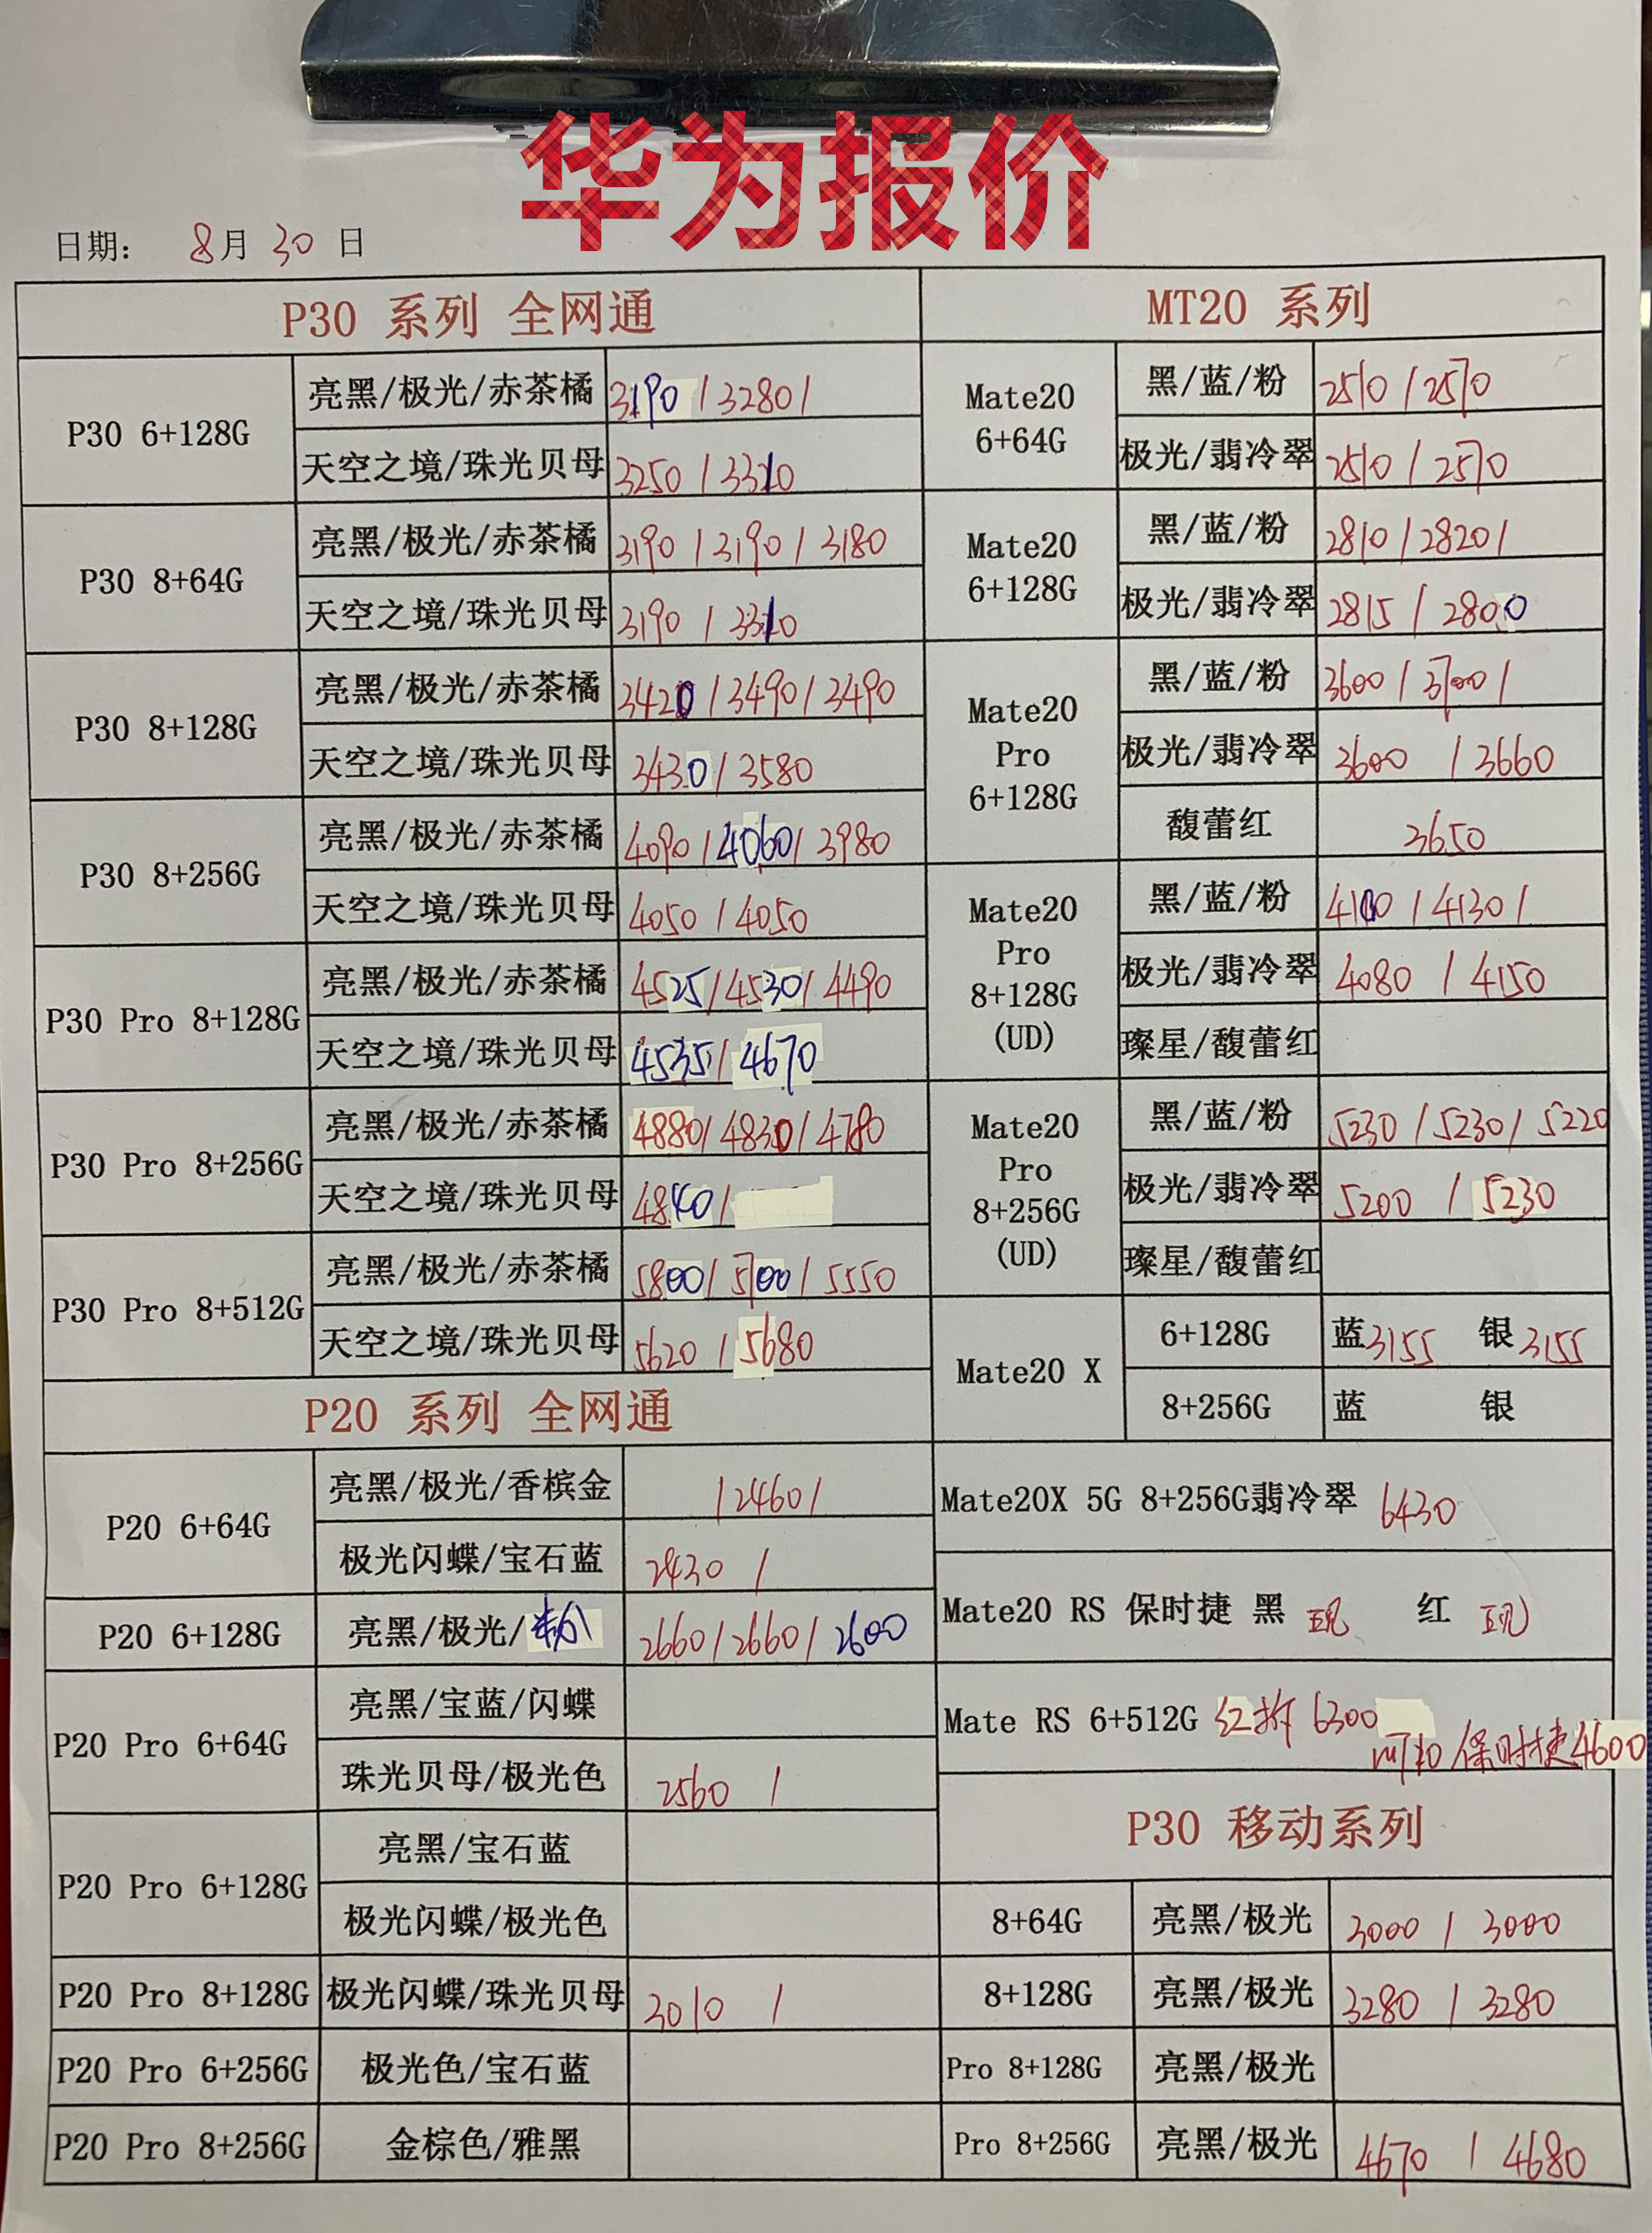 华为报价
日期: 8月 30 日
P30 系列 全网通
P30 6+128G 亮黑/极光/赤茶橘 3190 / 3280 /
天空之境/珠光贝母 3250 / 3310
P30 8+64G 亮黑/极光/赤茶橘 3190 / 3190 / 3180
天空之境/珠光贝母 3190 / 3310
P30 8+128G 亮黑/极光/赤茶橘 3420 / 3490 / 3490
天空之境/珠光贝母 3430 / 3580
P30 8+256G 亮黑/极光/赤茶橘 4090 / 4060 / 3980
天空之境/珠光贝母 4050 / 4050
P30 Pro 8+128G 亮黑/极光/赤茶橘 4525 / 4530 / 4490
天空之境/珠光贝母 4535 / 4670
P30 Pro 8+256G 亮黑/极光/赤茶橘 4880 / 4830 / 4780
天空之境/珠光贝母 4840 /
P30 Pro 8+512G 亮黑/极光/赤茶橘 5800 / 5700 / 5550
天空之境/珠光贝母 5620 / 5680
P20 系列 全网通
P20 6+64G 亮黑/极光/香槟金 / 2460 /
极光闪蝶/宝石蓝 2430 /
P20 6+128G 亮黑/极光/粉 2660 / 2660 / 2600
P20 Pro 6+64G 亮黑/宝蓝/闪蝶
珠光贝母/极光色 2560 /
P20 Pro 6+128G 亮黑/宝石蓝
极光闪蝶/极光色
P20 Pro 8+128G 极光闪蝶/珠光贝母 3010 /
P20 Pro 6+256G 极光色/宝石蓝
P20 Pro 8+256G 金棕色/雅黑
MT20 系列
Mate20
6+64G
黑/蓝/粉 2510 / 2570
极光/翡冷翠 2510 / 2570
Mate20
6+128G
黑/蓝/粉 2810 / 2820 /
极光/翡冷翠 2815 / 2800
Mate20
Pro
6+128G
黑/蓝/粉 3600 / 3700 /
极光/翡冷翠 3600 / 3660
馥蕾红 3650
Mate20
Pro
8+128G
(UD)
黑/蓝/粉 4100 / 4130 /
极光/翡冷翠 4080 / 4150
璨星/馥蕾红
Mate20
Pro
8+256G
(UD)
黑/蓝/粉 5230 / 5230 / 5220
极光/翡冷翠 5200 / 5230
璨星/馥蕾红
Mate20 X
6+128G 蓝 3155 银 3155
8+256G 蓝 银
Mate20X 5G 8+256G翡冷翠 6430
Mate20 RS 保时捷 黑 现 红 现
Mate RS 6+512G 红拆 6300
MT10 保时捷 4600
P30 移动系列
8+64G 亮黑/极光 3000 / 3000
8+128G 亮黑/极光 3280 / 3280
Pro 8+128G 亮黑/极光
Pro 8+256G 亮黑/极光 4670 / 4680